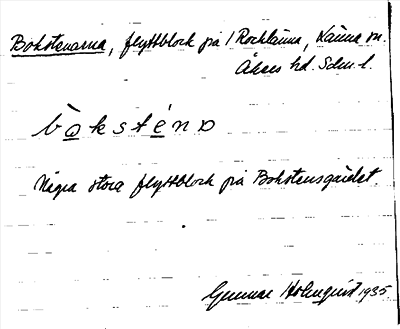 Bokstenarna, flyttblock på / Rocklunna, Länna sn.
Åkers hd. Sdm. l.
bo̱kste̱na
Några stora flyttblock på Bokstensgärdet.
Gunnar Holmquist 1935.